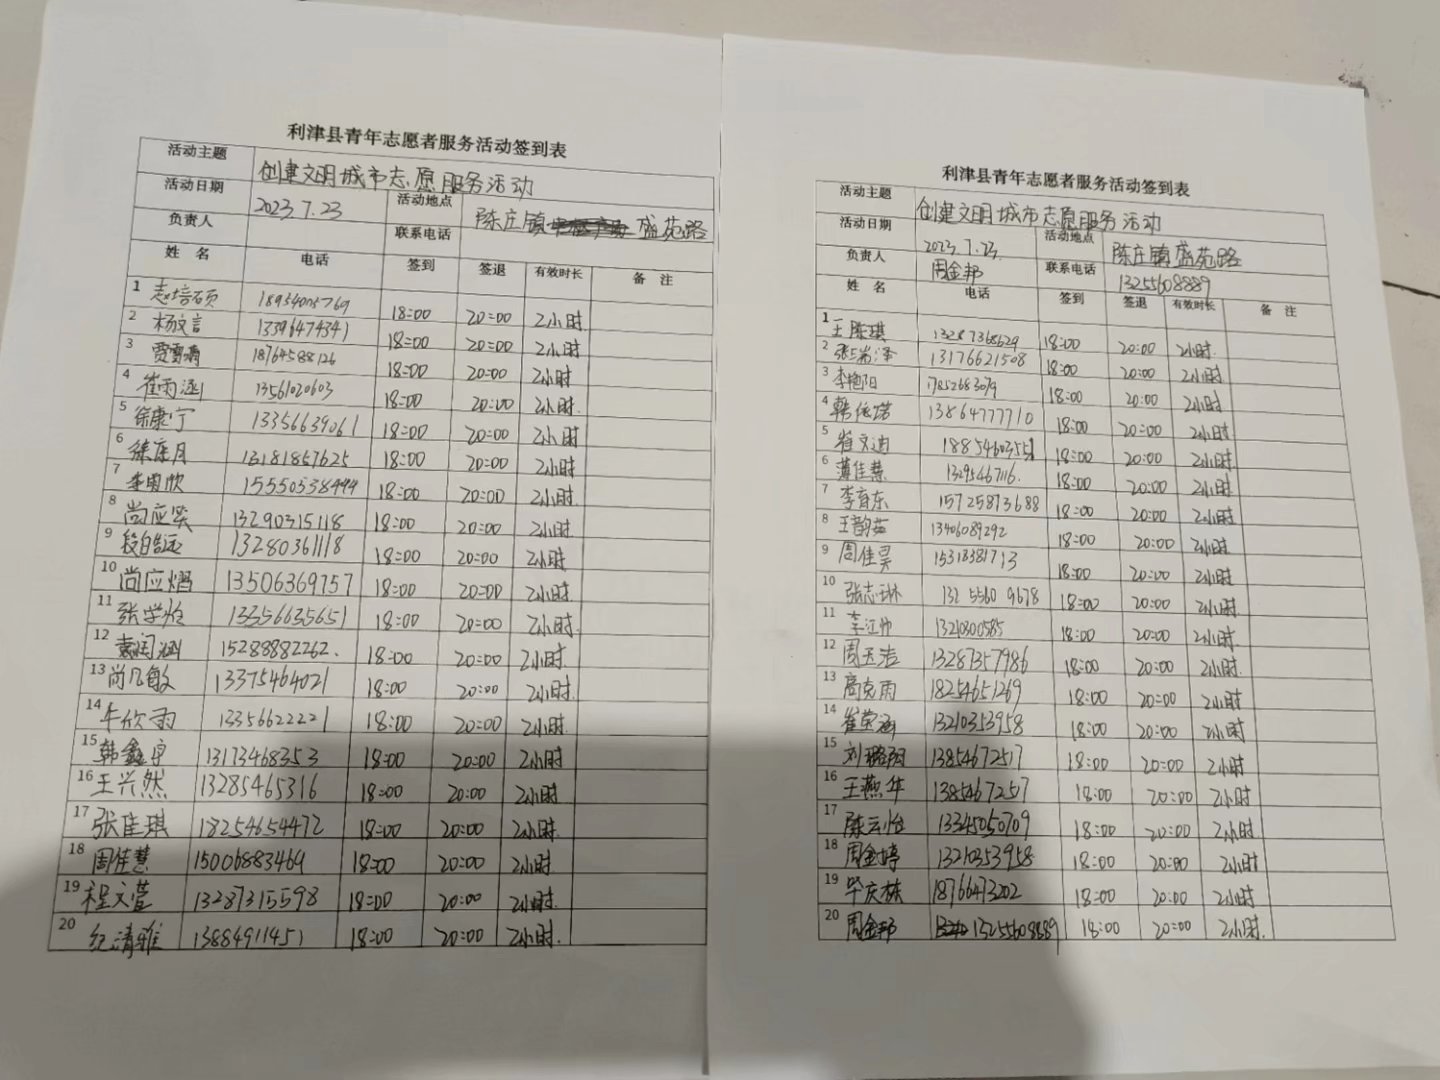 利津县青年志愿者服务活动签到表
活动主题 创建文明城市志愿服务活动
活动日期 2023.7.23 活动地点 陈庄镇 盛苑路
负责人 联系电话
姓名 电话 签到 签退 有效时长 备注
1 赵培硕 18954005769 18:00 20:00 2小时
2 杨文言 13396474341 18:00 20:00 2小时
3 18764588126 18:00 20:00 2小时
4 崔雨涵 13561020603 18:00 20:00 2小时
5 徐康宁 13356639061 18:00 20:00 2小时
6 徐庄月 13181857625 18:00 20:00 2小时
7 李雨欣 15550538444 18:00 20:00 2小时
8 尚应奕 13290315118 18:00 20:00 2小时
9 13280361118 18:00 20:00 2小时
10 尚应熠 13506369757 18:00 20:00 2小时
11 张学怡 13356635651 18:00 20:00 2小时
12 袁润涵 15288882262. 18:00 20:00 2小时
13 尚凡敏 13375464021 18:00 20:00 2小时
14 牛欣雨 13356622221 18:00 20:00 2小时
15 韩鑫宇 13173468353 18:00 20:00 2小时
16 王兴然 13285465316 18:00 20:00 2小时
17 张佳琪 18254654472 18:00 20:00 2小时
18 周佳慧 15006883469 18:00 20:00 2小时
19 程文萱 13287315598 18:00 20:00 2小时
20 纪清雅 13884911451 18:00 20:00 2小时.
利津县青年志愿者服务活动签到表
活动主题 创建文明城市志愿服务活动
活动日期 2023.7.23. 活动地点 陈庄镇盛苑路
负责人 周金邦 联系电话 13255608889
姓名 电话 签到 签退 有效时长 备注
1 王陈琪 13287368629 18:00 20:00 2小时.
2 张瑞泽 13176621508 18:00 20:00 2小时
3 李艳阳 17852683079 18:00 20:00 2小时
4 韩依诺 13864777710 18:00 20:00 2小时
5 崔文迪 18854603551 18:00 20:00 2小时
6 薄佳慧 13295467116. 18:00 20:00 2小时
7 李育东 15725873688 18:00 20:00 2小时
8 王韵茹 13406089292 18:00 20:00 2小时
9 周佳昊 15313381713 18:00 20:00 2小时
10 张志琳 132 5560 9678 18:00 20:00 2小时
11 李江帅 13210300585 18:00 20:00 2小时
12 周玉洁 13287357986 18:00 20:00 2小时
13 高克雨 18254651269 18:00 20:00 2小时
14 崔荣涵 13210353958 18:00 20:00 2小时
15 13854672517 18:00 20:00 2小时
16 王燕华 1385467257 18:00 20:00 2小时
17 陈云怡 13345050709 18:00 20:00 2小时
18 周金婷 13210353958 18:00 20:00 2小时
19 毕庆栋 18766473202 18:00 20:00 2小时
20 周金邦 13255608889 18:00 20:00 2小时.